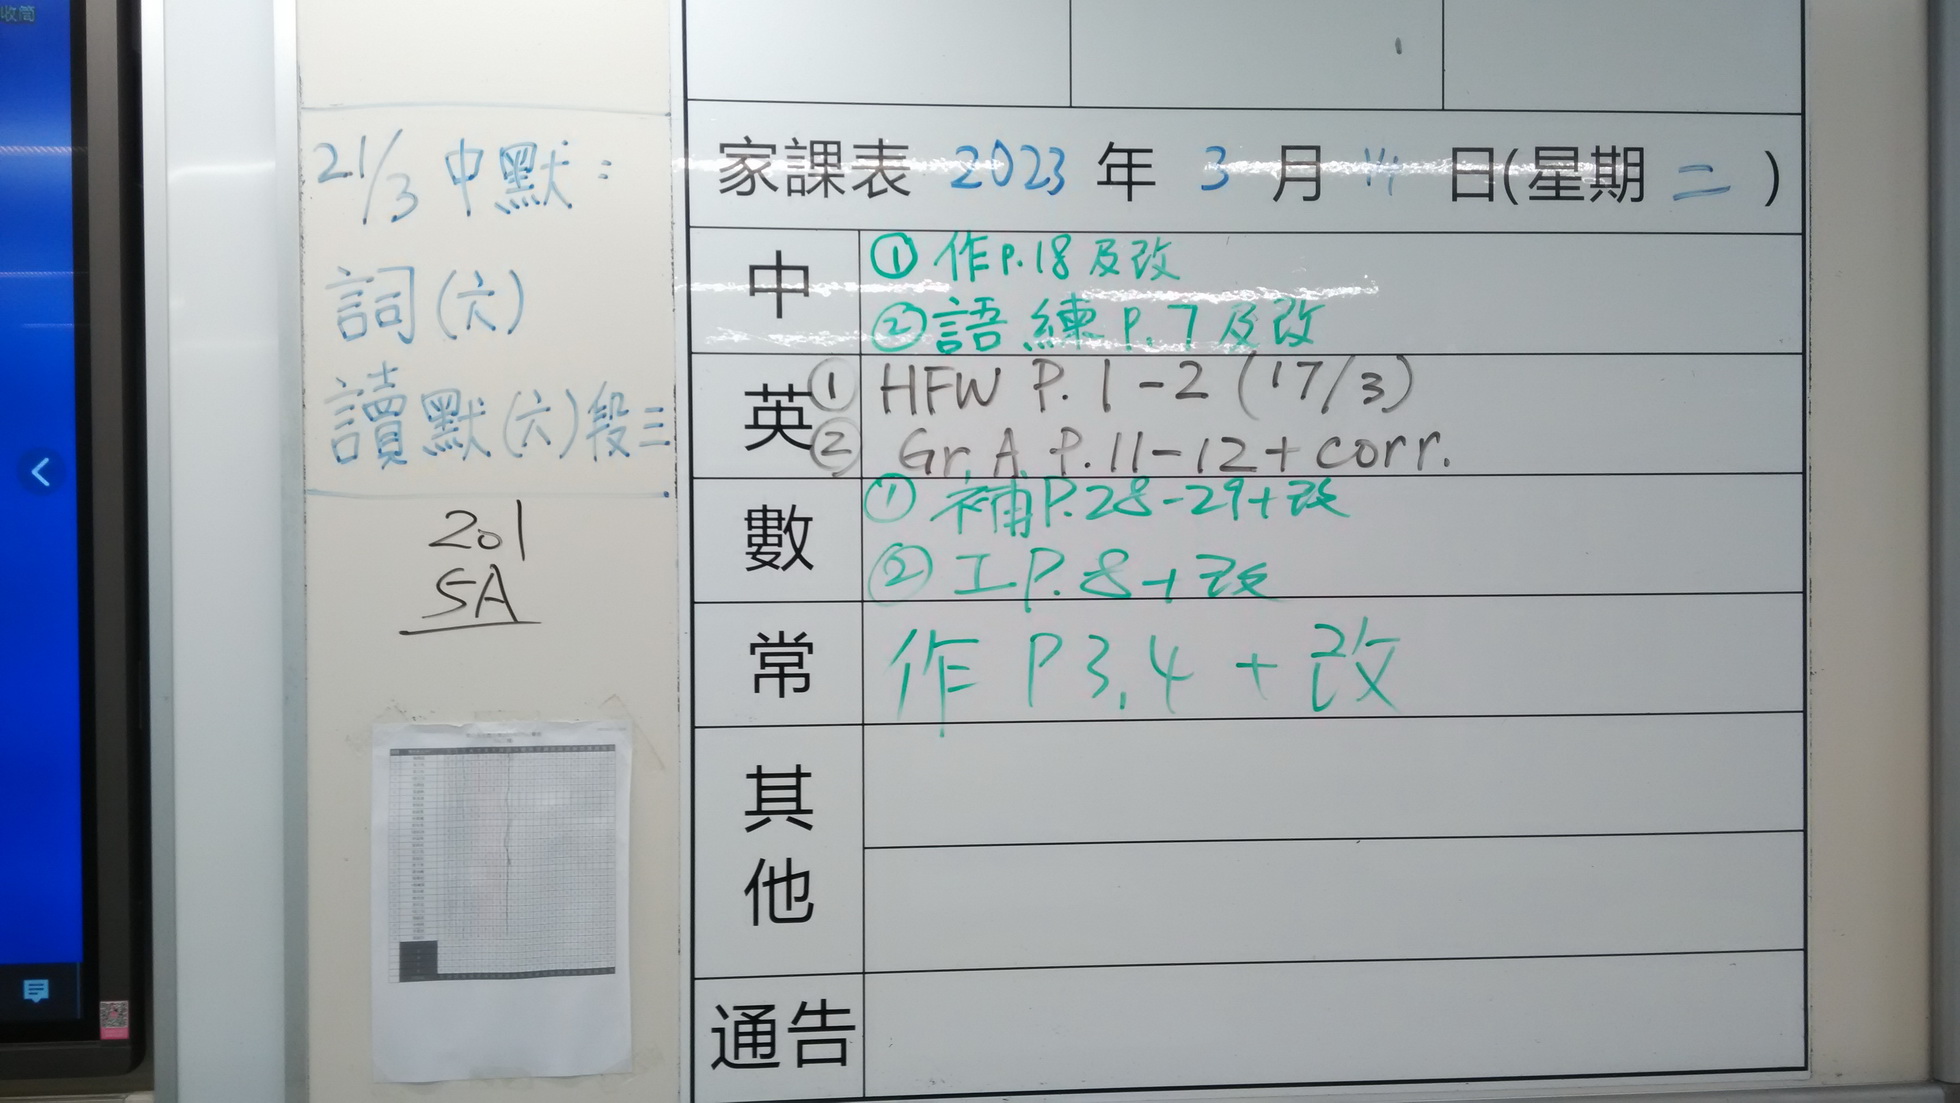 收簡
21/3 中默：
詞(六)
讀默(六)段三
201
5A
家課表 2023 年 3 月 14 日(星期 二 )
中
① 作P.18及改
② 語練P.7及改
英
① HFW P.1-2 (17/3)
② Gr.A P.11-12+corr.
數
① 補P.28-29+改
② 工P.8+改
常
作 P3,4 + 改
其他
通告